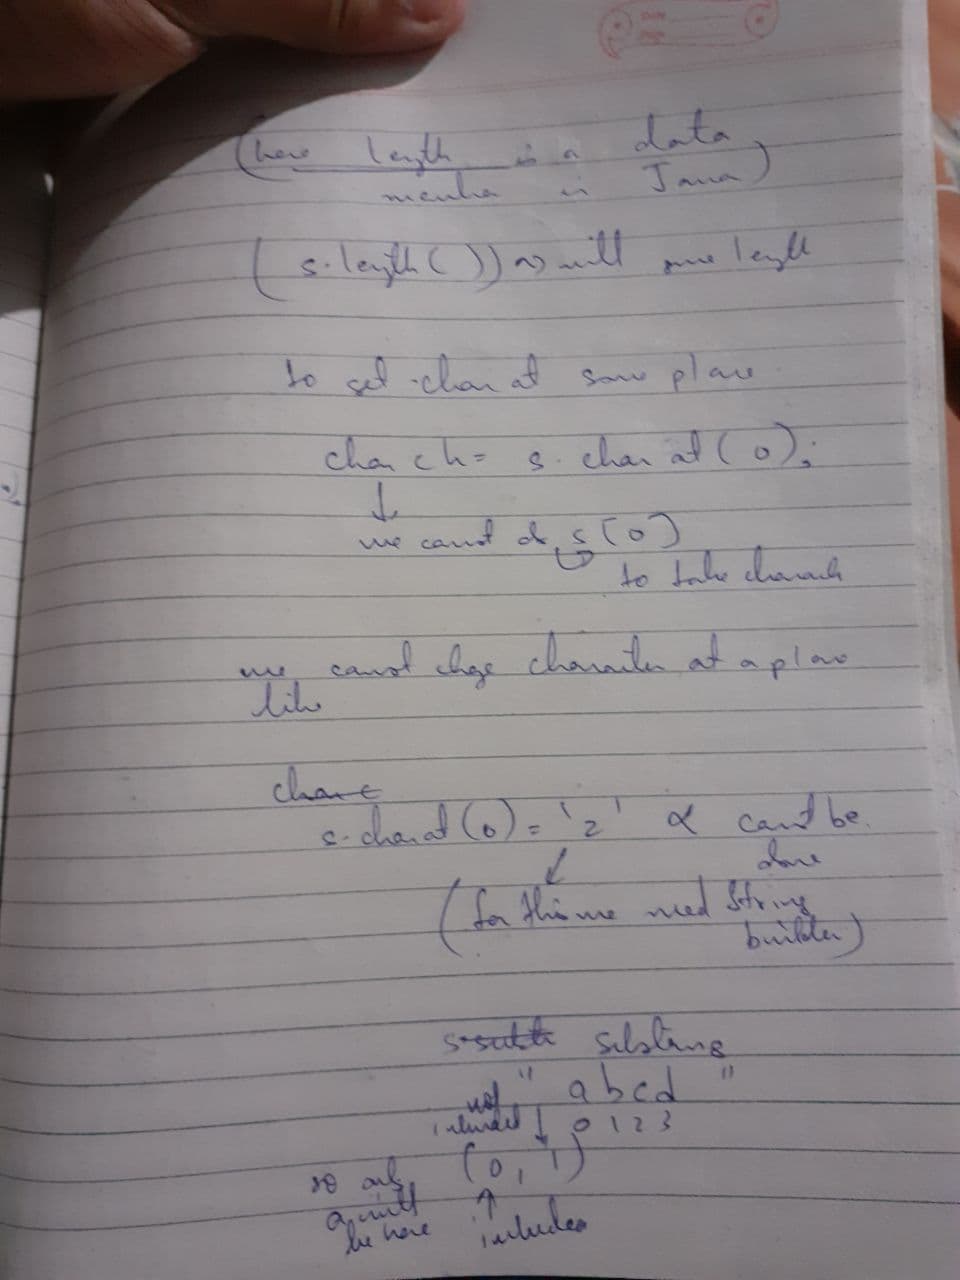 (here length is a data
member in Java)
(s.length()) ~> will give length
to get char at some place
char ch = s.charat(0);
↓
we cannot do s[0]
to take charach
we cannot chge character at a place
like
s.charat(0) = 'z' α cannot be
done
(for this we need String
builder)
substring
" abcd "
not
included ↓ 0 1 2 3
(0, 1)
so only
a will
be here
↑
included